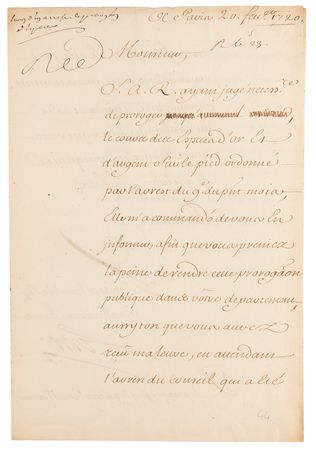 A Paris 20. feu.er 1720.
R le 23.
Rée
Monsieur,
S. A. R. ayant jugé necess.re
de proroger
le cours des Especes d'or Et
d'argent Sur le pied ordonné
par l'arrest du 9.e du pnt mois,
Elle m'a commandé de vous En
informer, afin que vous preniez
la peine de rendre cette prorogaõn
publique dans vôtre departement,
aussytôt que vous aurez
reçû ma lettre, en attendant
l'arrest du conseil qui a esté
44